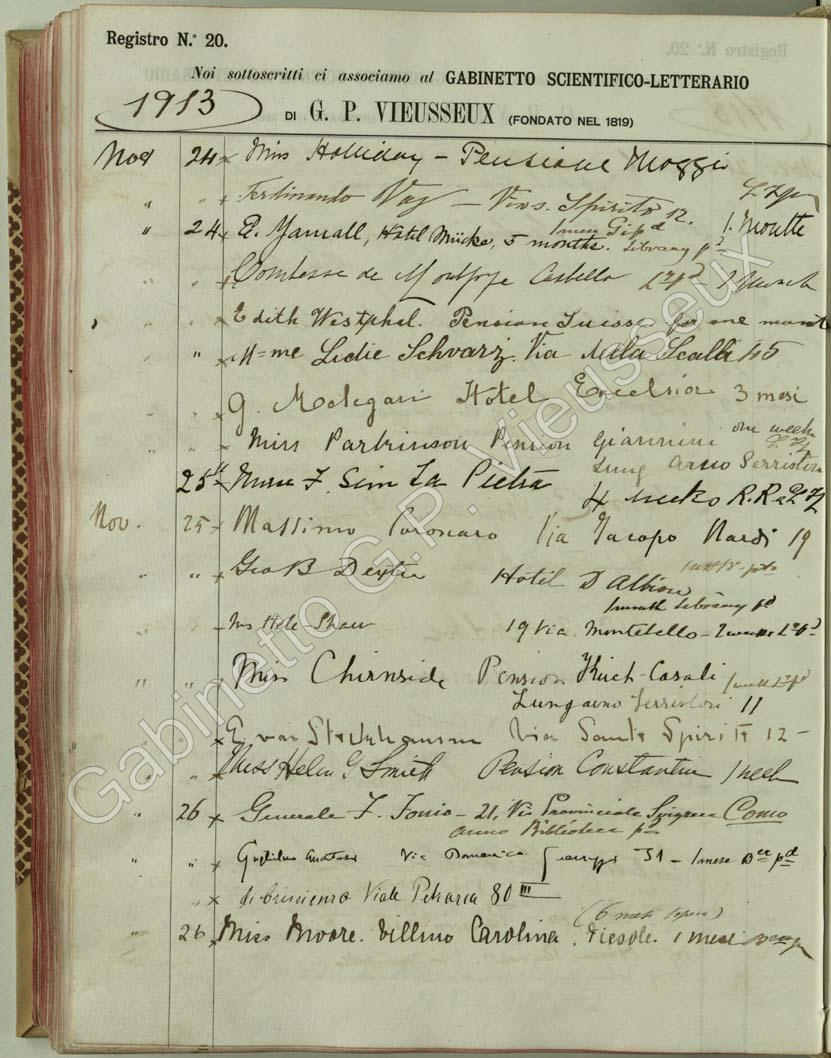 Registro N.° 20.
Noi sottoscritti ci associamo al GABINETTO SCIENTIFICO-LETTERARIO
1913
DI G. P. VIEUSSEUX (FONDATO NEL 1819)
Nov 24 Miss Holliday – Pensione Moggi
" " Ferdinando – Via S. Spirito 12.
" 24 E. Yarnall, Hotel Mücke, 5 months. Library pd
" " Comtesse de Castello
" " Edith Westphal. Pension Suisse for one month
" M=me Lidie Schvarz. Via della Scala 45
" " G. Melegari Hotel Excelsior 3 mesi
" " Miss Parkinson Pension Giannini one week
Lung Arno Serristori
25 F. Sim La Pietra
4 weeks
Nov. 25 Massimo Coronaro Via Jacopo Nardi 19
" " Geo B Dexter Hotel D Albion
1 month Library pd
" " Mrs Hele-Shaw 19 Via Montebello –
" " Miss Chirnside Pension Kirch-Casali
Lungarno Serristori 11
" " E. van Via Santo Spirito 12 –
" " Miss Helen G Smith Pension Constantin 1 week
" 26 Generale F. – 21, Via Provinciale Como
anno Biblioteca
" " Guglielmo Via Domenico 31 – 1 mese pd
" di Crescienzo Viale Petrarca 80 III
(6 mesi sopra)
" 26 Miss Moore. Villino Carolina, Fiesole. 1 mese
Gabinetto G.P. Vieusseux